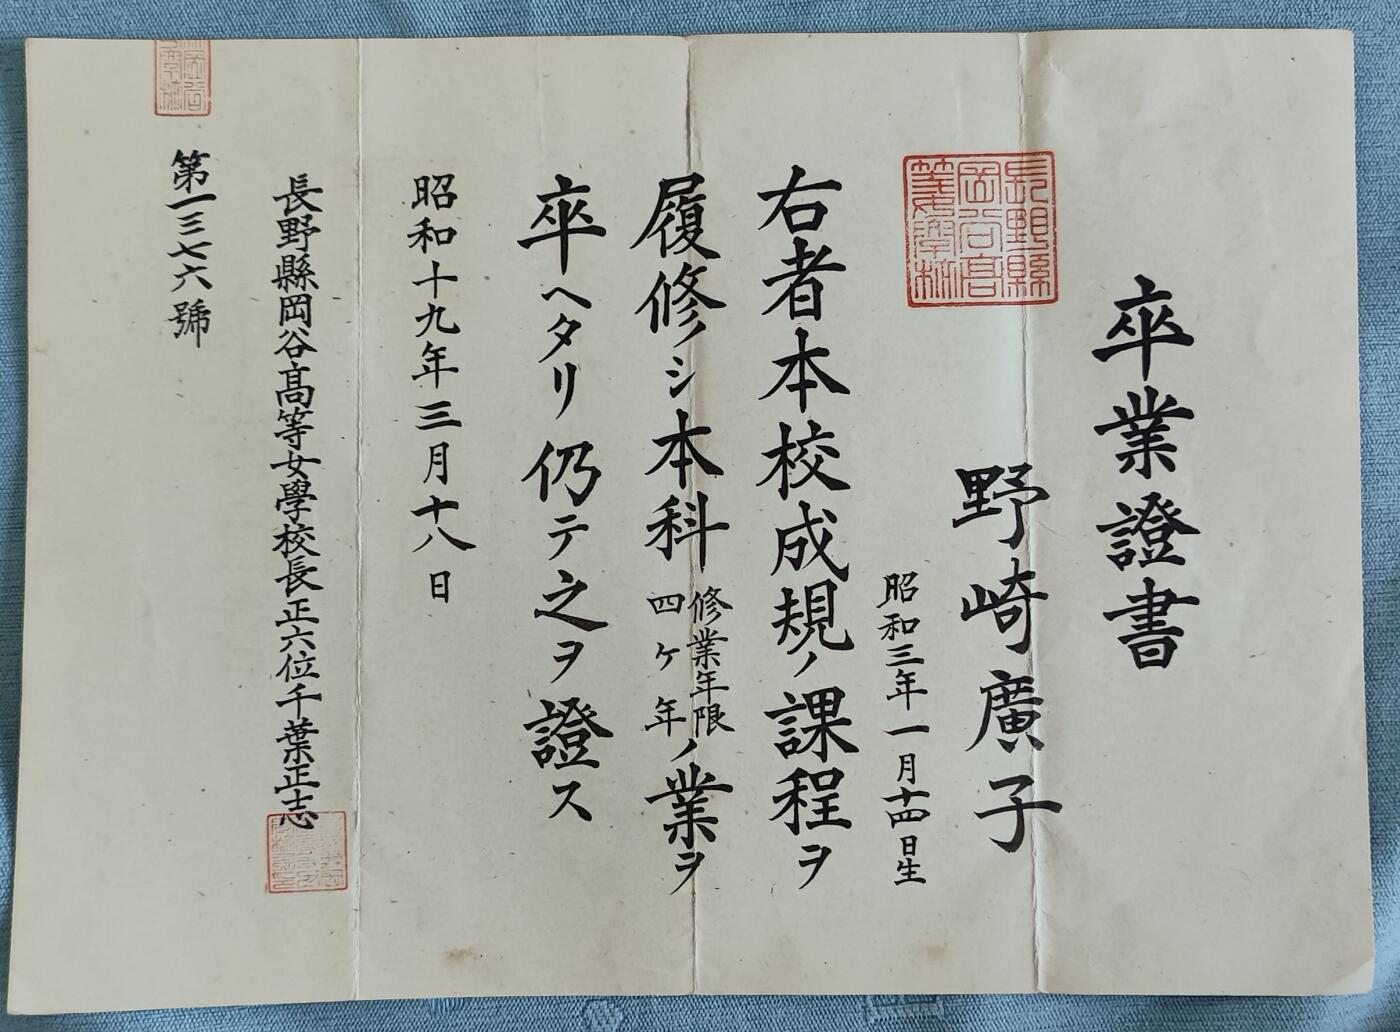 卒業證書
野崎廣子
昭和三年一月十四日生
右者本校成規ノ課程ヲ
履修シ本科修業年限四ヶ年ノ業ヲ
卒ヘタリ仍テ之ヲ證ス
昭和十九年三月十八日
長野縣岡谷高等女學校長正六位千葉正志
第一三七六號
長野縣
岡谷高
等女學校